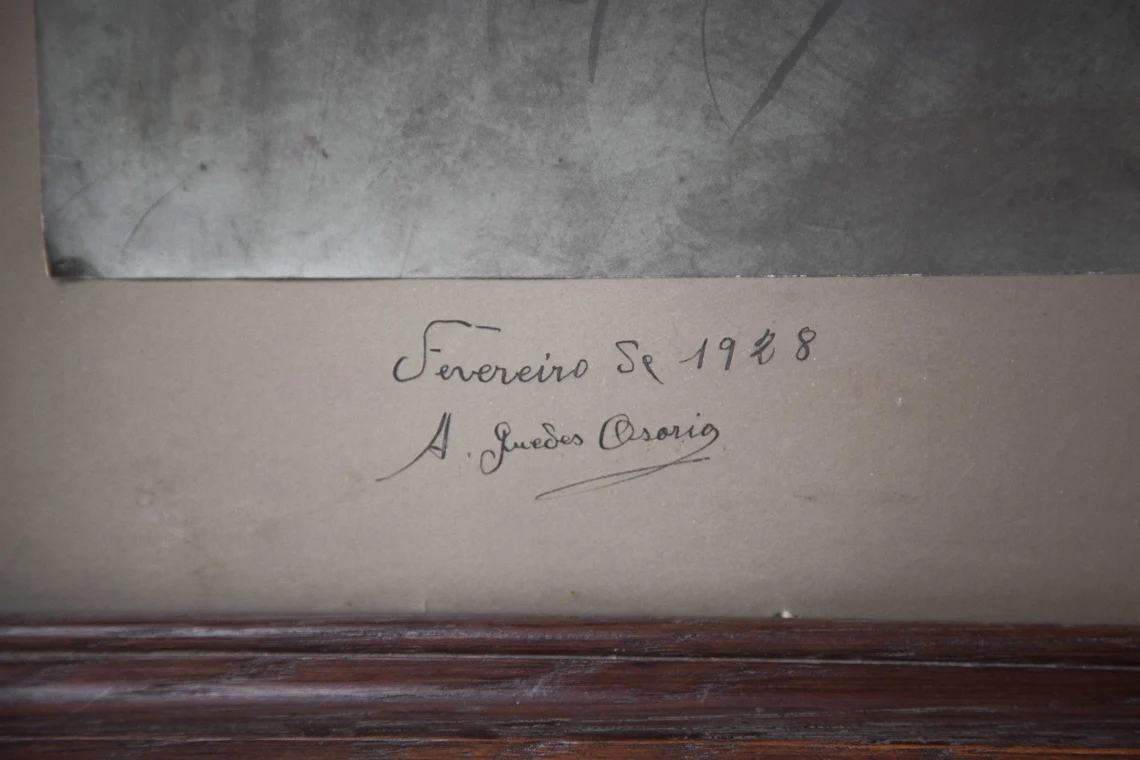 Fevereiro de 1928
A. Guedes Osorio